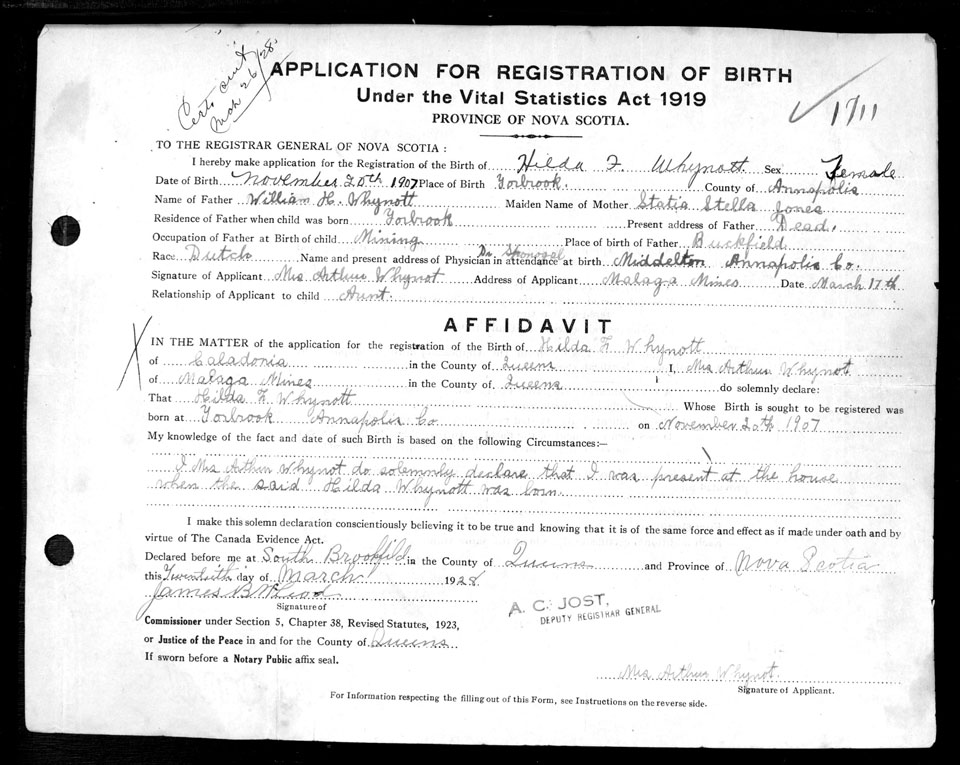 Certs sent
Mch 26/28.
APPLICATION FOR REGISTRATION OF BIRTH
Under the Vital Statistics Act 1919
PROVINCE OF NOVA SCOTIA.
1711
TO THE REGISTRAR GENERAL OF NOVA SCOTIA :
I hereby make application for the Registration of the Birth of Hilda F. Whynott. Sex Female
Date of Birth November 20th 1907 Place of Birth Torbrook. County of Annapolis
Name of Father William H. Whynott Maiden Name of Mother Statia Stella Jones
Residence of Father when child was born Torbrook Present address of Father Dead.
Occupation of Father at Birth of child Mining Place of birth of Father Buckfield
Race Dutch Name and present address of Physician in attendance at birth Dr. Middelton Annapolis Co.
Signature of Applicant Mrs Arthur Whynot Address of Applicant Malaga Mines Date March 17th
Relationship of Applicant to child Aunt.
AFFIDAVIT
IN THE MATTER of the application for the registration of the Birth of Hilda F Whynott
of Caladonia in the County of Queens I, Mrs Arthur Whynot
of Malaga Mines in the County of Queens do solemnly declare:
That Hilda F Whynott Whose Birth is sought to be registered was
born at Torbrook Annapolis Co on November 20th 1907
My knowledge of the fact and date of such Birth is based on the following Circumstances:—
I Mrs Arthur Whynot do solemnly declare that I was present at the house
when the said Hilda Whynott was born
I make this solemn declaration conscientiously believing it to be true and knowing that it is of the same force and effect as if made under oath and by
virtue of The Canada Evidence Act.
Declared before me at South Brookfild in the County of Queens and Province of Nova Scotia
this Twentieth day of March 1928
James B McLeod
Signature of
A. C. JOST,
DEPUTY REGISTRAR GENERAL
Commissioner under Section 5, Chapter 38, Revised Statutes, 1923,
or Justice of the Peace in and for the County of Queens
If sworn before a Notary Public affix seal.
Mrs Arthur Whynot.
Signature of Applicant.
For Information respecting the filling out of this Form, see Instructions on the reverse side.